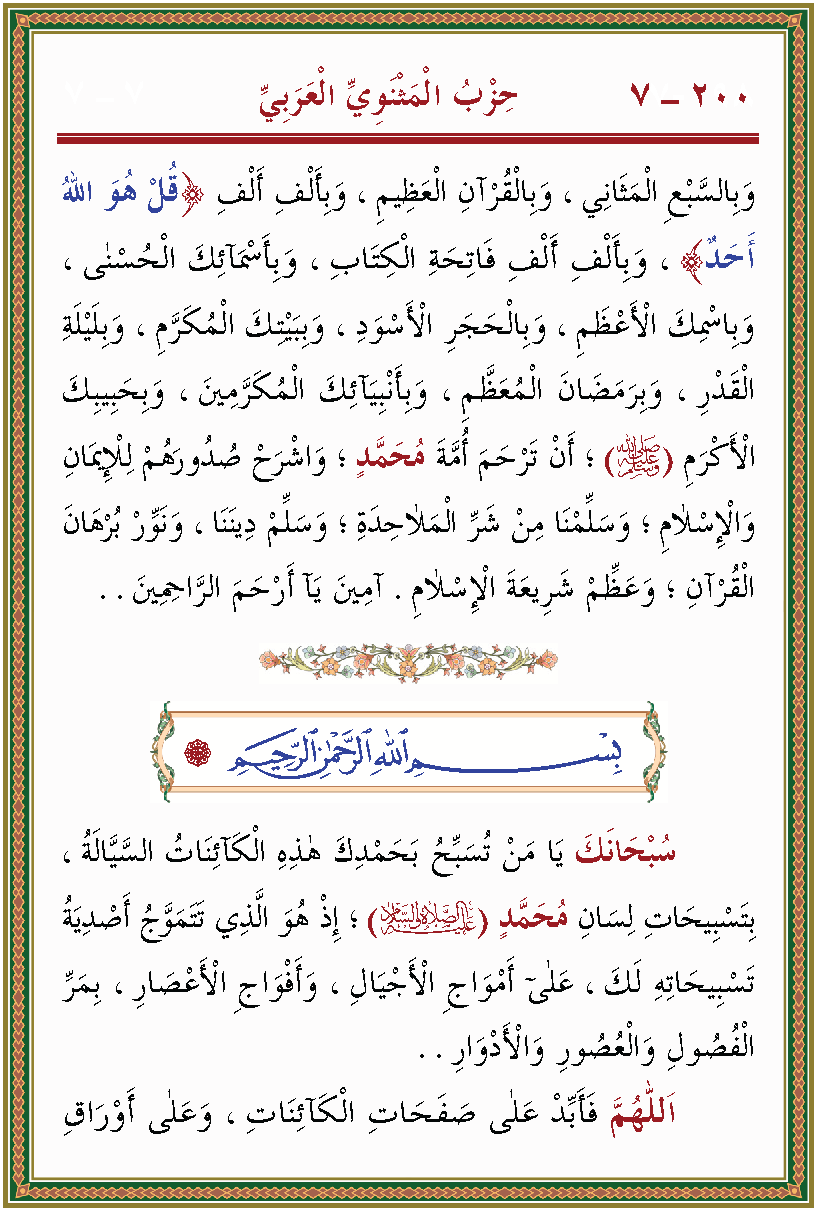 ٢٠٠ – ٧ حِزْبُ الْمَثْنَوِيِّ الْعَرَبِيِّ ٧ – ٧
وَبِالسَّبْعِ الْمَثَانِي ، وَبِالْقُرْآنِ الْعَظِيمِ ، وَبِأَلْفِ أَلْفِ ﴿قُلْ هُوَ اللهُ
أَحَدٌ﴾ ، وَبِأَلْفِ أَلْفِ فَاتِحَةِ الْكِتَابِ ، وَبِأَسْمَآئِكَ الْحُسْنٰى ،
وَبِاسْمِكَ الْأَعْظَمِ ، وَبِالْحَجَرِ الْأَسْوَدِ ، وَبِبَيْتِكَ الْمُكَرَّمِ ، وَبِلَيْلَةِ
الْقَدْرِ ، وَبِرَمَضَانَ الْمُعَظَّمِ ، وَبِأَنْبِيَآئِكَ الْمُكَرَّمِينَ ، وَبِحَبِيبِكَ
الْأَكْرَمِ (ﷺ) ؛ أَنْ تَرْحَمَ أُمَّةَ مُحَمَّدٍ ؛ وَاشْرَحْ صُدُورَهُمْ لِلْإِيمَانِ
وَالْإِسْلَامِ ؛ وَسَلِّمْنَا مِنْ شَرِّ الْمَلَاحِدَةِ ؛ وَسَلِّمْ دِينَنَا ، وَنَوِّرْ بُرْهَانَ
الْقُرْآنِ ؛ وَعَظِّمْ شَرِيعَةَ الْإِسْلَامِ . آمِينَ يَآ أَرْحَمَ الرَّاحِمِينَ . .
بِسْمِ ٱللهِ ٱلرَّحْمٰنِ ٱلرَّحِيمِ
سُبْحَانَكَ يَا مَنْ تُسَبِّحُ بَحَمْدِكَ هٰذِهِ الْكَآئِنَاتُ السَّيَّالَةُ ،
بِتَسْبِيحَاتِ لِسَانِ مُحَمَّدٍ (عَلَيْهِ الصَّلَاةُ وَالسَّلَامُ) ؛ إِذْ هُوَ الَّذِي تَتَمَوَّجُ أَصْدِيَةُ
تَسْبِيحَاتِهِ لَكَ ، عَلٰىٓ أَمْوَاجِ الْأَجْيَالِ ، وَأَفْوَاجِ الْأَعْصَارِ ، بِمَرِّ
الْفُصُولِ وَالْعُصُورِ وَالْأَدْوَارِ . .
اَللّٰهُمَّ فَأَبِّدْ عَلٰى صَفَحَاتِ الْكَآئِنَاتِ ، وَعَلٰى أَوْرَاقِ